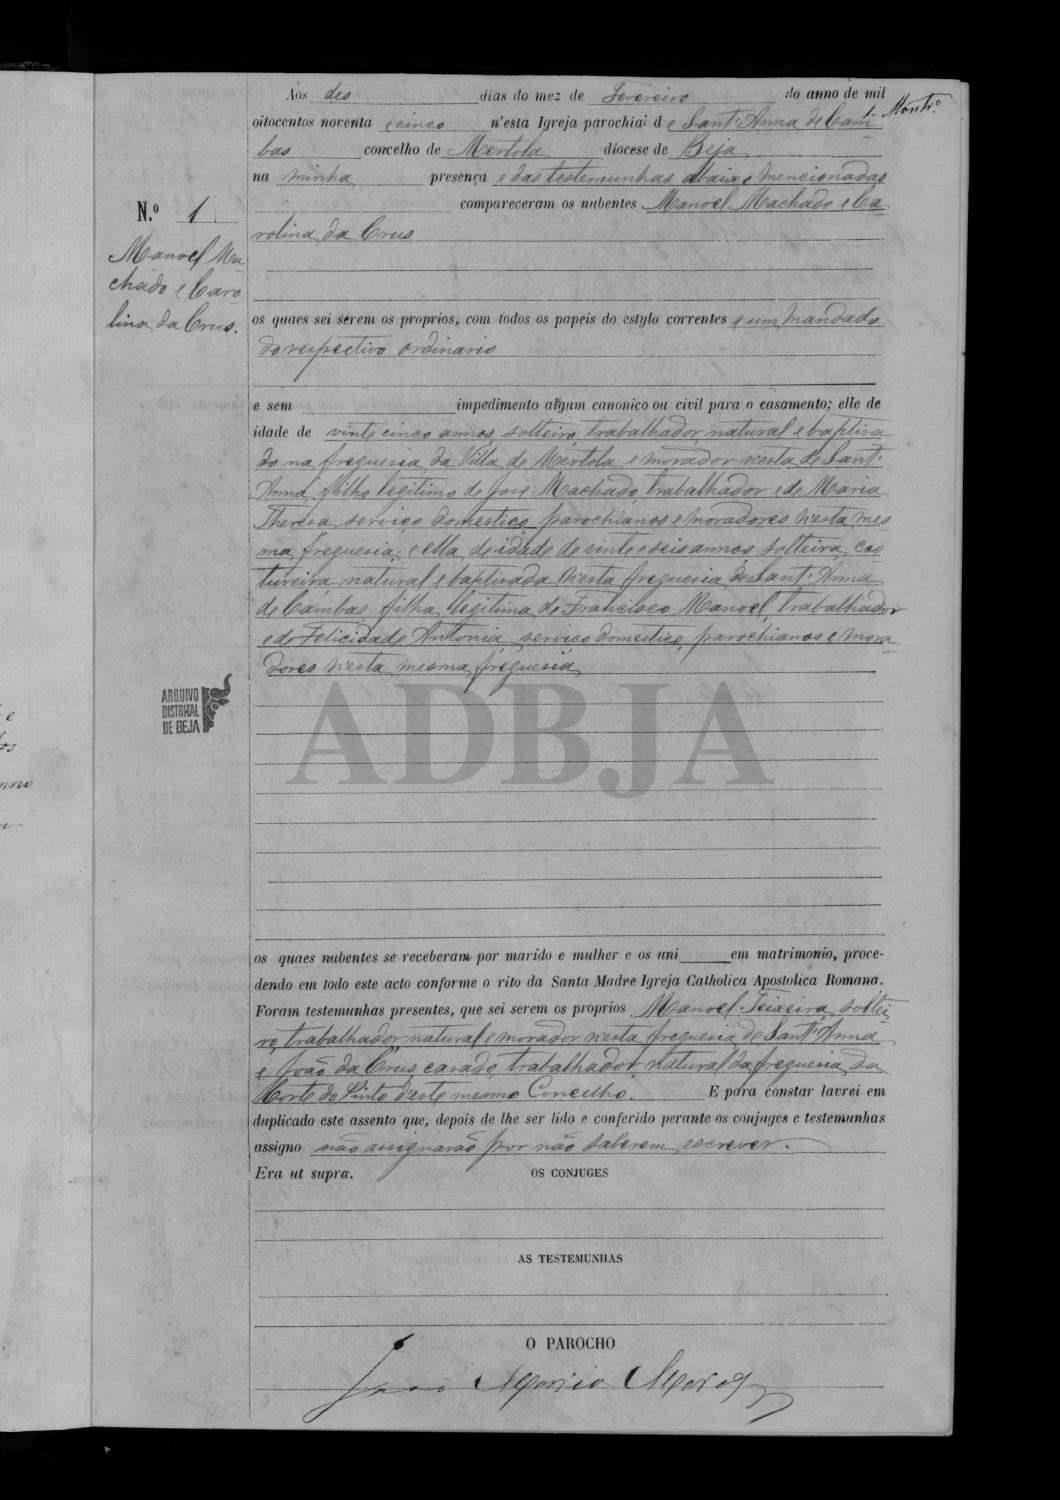 Aos des dias do mez de Fevereiro do anno de mil
oitocentos noventa e cinco n'esta Igreja parochial de Sant'Anna de Cam
bas concelho de Mertola diocese de Beja
na minha presença e das testemunhas abaixo mencionadas
compareceram os nubentes Manoel Machado e Ca
rolina da Crus
N.º 1
Manoel Ma
chado e Caro
lina da Crus.
os quaes sei serem os proprios, com todos os papeis do estylo correntes e um mandado
do respectivo ordinario
e sem impedimento algum canonico ou civil para o casamento; elle de
idade de vinte cinco annos, solteiro, trabalhador, natural e baptisa
do na freguesia da Villa de Mertola e morador n'esta de Sant'
Anna, filho legitimo de Jose Machado, trabalhador e de Maria
Theresa, serviço domestico, parochianos e moradores n'esta mes
ma freguesia; e ella de idade de vinte e seis annos solteira, cos
tureira, natural e baptisada n'esta freguesia de Sant'Anna
de Cambas, filha legitima de Francisco Manoel, trabalhador
e de Felicidade Antonia, serviço domestico, parochianos e mora
dores n'esta mesma freguesia
ARQUIVO
DISTRITAL
DE BEJA
ADBJA
os quaes nubentes se receberam por marido e mulher e os uni em matrimonio, proce-
dendo em todo este acto conforme o rito da Santa Madre Igreja Catholica Apostolica Romana.
Foram testemunhas presentes, que sei serem os proprios Manoel Teixeira, soltei
ro, trabalhador, natural e morador n'esta freguesia de Sant'Anna
e João da Crus, casado, trabalhador, natural da freguesia da
Corte do Pinto d'este mesmo Concelho. E para constar lavrei em
duplicado este assento que, depois de lhe ser lido e conferido perante os conjuges e testemunhas
assigno não assignarão por não saberem escrever.
Era ut supra.
OS CONJUGES
AS TESTEMUNHAS
O PAROCHO